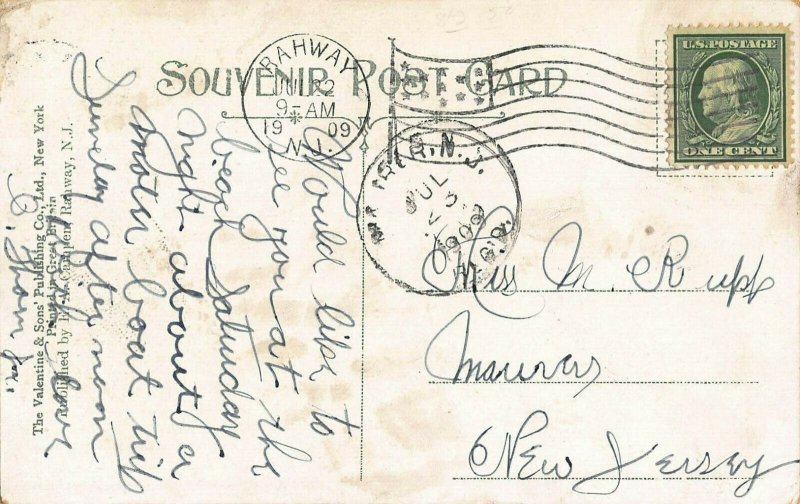 SOUVENIR POST CARD
RAHWAY
JUL 22
9-AM
1909
N.J.
U.S. POSTAGE
ONE CENT
N.J.
JUL
23
1909
Miss M. Rupp
Maurers
New Jersey
Would like to
see you at the
beach Saturday
night about a
motor boat trip
Sunday after noon
with love
The Valentine & Sons' Publishing Co., Ltd., New York
Printed in Great Britain
Published by Campbell, Rahway, N.J.